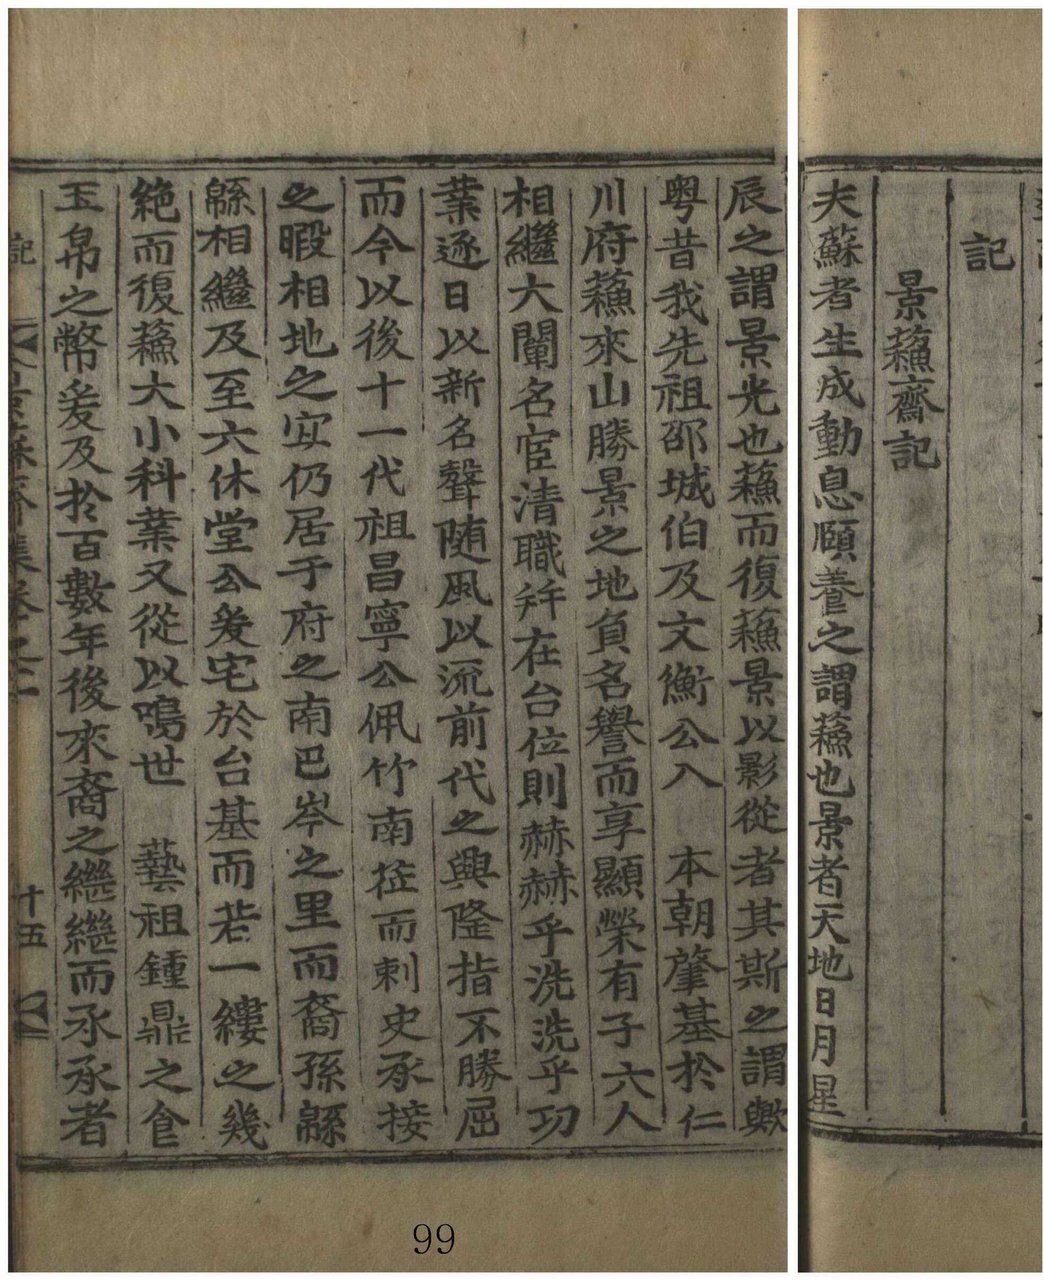 記
景蘓齋記
夫蘇者生成動息頤養之謂蘓也景者天地日月星
辰之謂景光也蘓而復蘓景以影從者其斯之謂歟
粤昔我先祖邵城伯及文衡公入 本朝肇基於仁
川府蘓來山勝景之地負名譽而享顯榮有子六人
相繼大闡名宦清職幷在台位則赫赫乎洗洗乎功
業逐日以新名聲随風以流前代之興隆指不勝屈
而今以後十一代祖昌寧公佩竹南莅而刺史承接
之暇相地之宜仍居于府之南巴岑之里而裔孫緜
緜相繼及至六休堂公爰宅於台基而若一縷之幾
絶而復蘓大小科業又從以鳴世 藝祖鍾鼎之食
玉帛之幣爰及於百數年後來裔之繼繼而承承者
記 景蘇齋集卷之二 十五
99